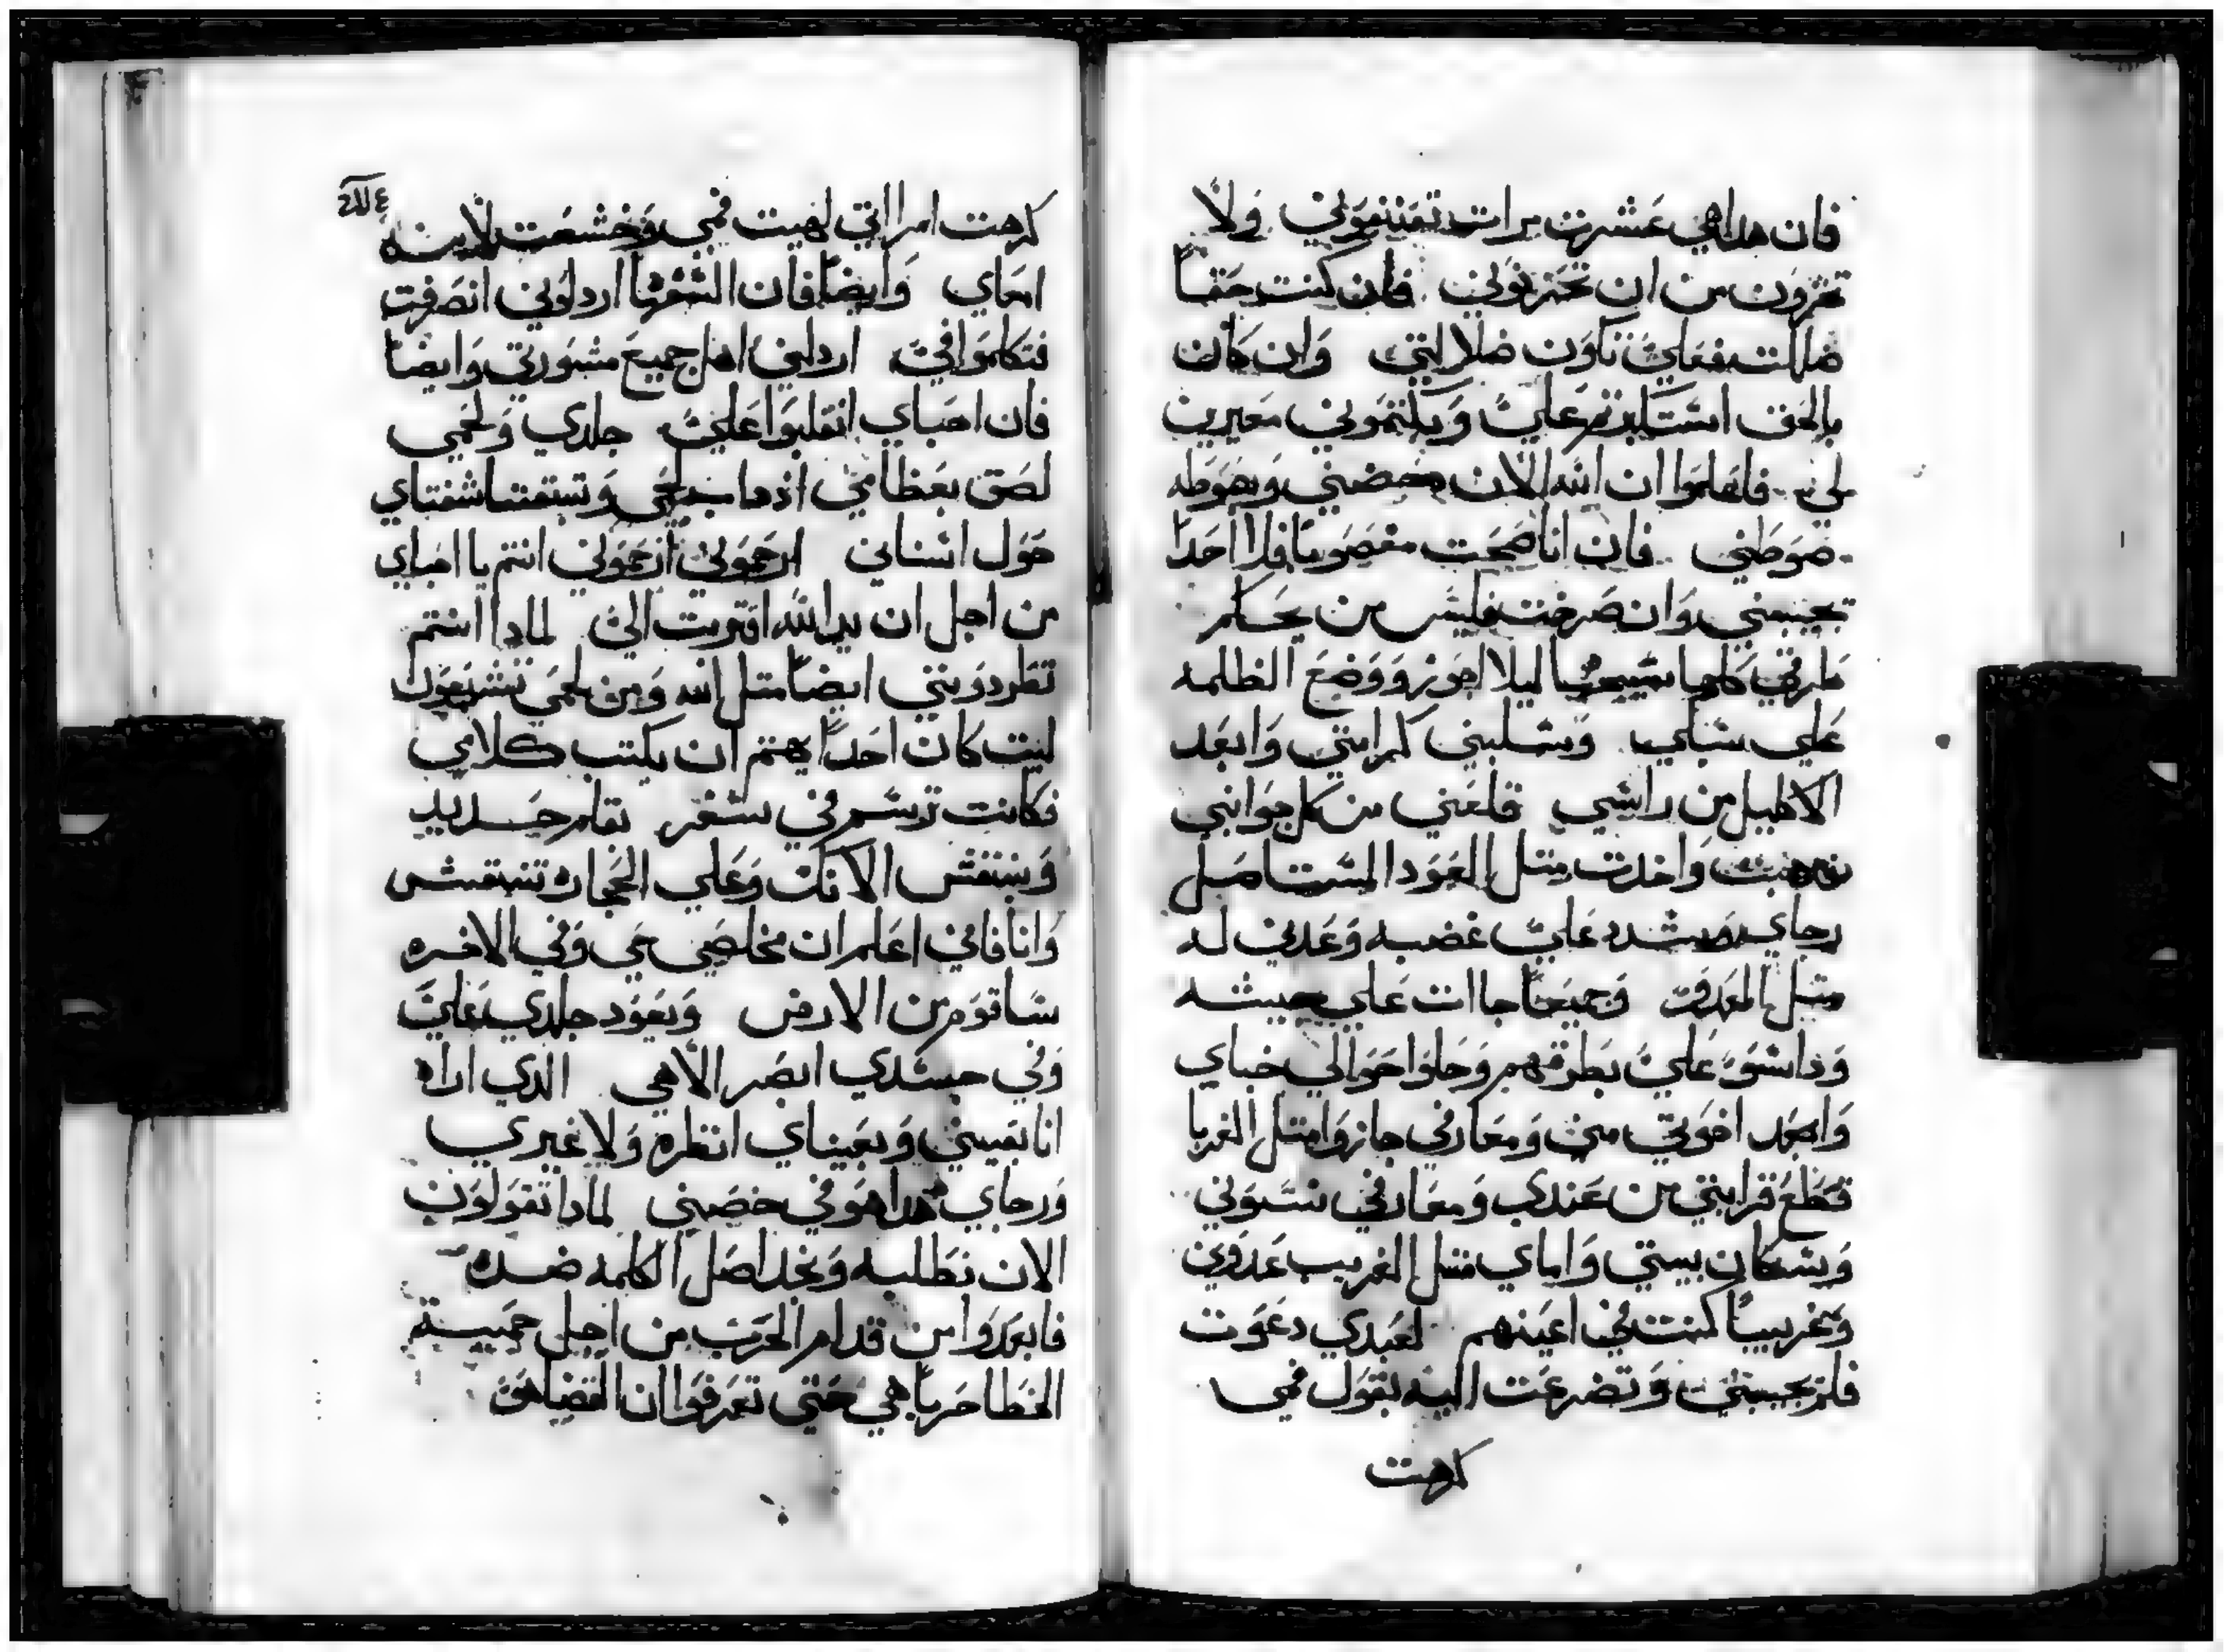 فان هداهي عشرت مرات تمتنموني ولا
تخزون من ان تحزنوني فان كنت حقاً
ضللت فعليّ تكون ضلالتي وان كان
بالحق استكبرتم عليّ وبكتموني معيرين
لي فاعلموا ان الله الان خضني وبضوطه
ضوطني فان انا ضجت مغصوباً فلا احداً
تجيبني وان صرخت فليس من يحكم
طرقي كلها سيجها ليلا اجوز ووضع الظلمه
علي سبلي وسلبني كرامتي وابعد
الاكليل من راسي قلعني من كل جوانبي
فدهبت واخدت متل العود المستاصل
رجاي شدد عليّ غضبه وعدني له
متل العدو وجميعاً جاات علي جيشه
وداسوّ عليّ بطرقهم وحلوا حوالي خباي
وابعد اخوتي مني ومعارفي جازوا متل الغربا
قطع قرابتي من عندي ومعارفي نسوني
وسكان بيتي واماي متل الغريب عدوني
وغريباً كنت في اعينهم لعبدي دعوت
فلم يجيبني وتضرعت اليه بقول فمي
كرهت
كرهت امراتي لهيت فمي وخشعت لابنه
امعاي وايضاً فان السفها اردلوني انصرفت
فتكلموا فيّ اردلني اهل جميع مشورتي وايضا
فان احباي انقلبوا عليّ جلدي ولحمي
لصق بعظامي اذ داب لحمي وتبقتا شفتاي
حول اسناني ارحموني ارحموني انتم يا احباي
من اجل ان يد الله اقتربت اليّ لمادا انتم
تطردونني ايضاً متل الله ومن لحمي تشبعون
ليت كان احداً يهتم ان يكتب كلامي
فكانت ترسم في سفر بقلم حديد
وبنقش الانك وعلي الحجاره تنتقش
وانا فاني اعلم ان مخلصي حي وفي الاخره
ساقوم من الارض ويعود جلدي عليّ
وفي جسدي ابصر الاهي الدي اراه
انا بنفسي وبعيناي انظره ولا غيري
ورجاي هدا هو في حضني لمادا تقولون
الان نطلبه ونجد اصل الكلمه ضده
فابعدوا من قدام الحرب من اجل حمية
الخطا حرباً هي حتي تعرفوا ان القضا هو